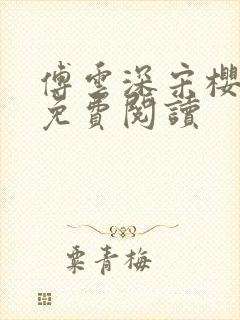 傅雲深宋櫻
免費閱讀
粟青梅